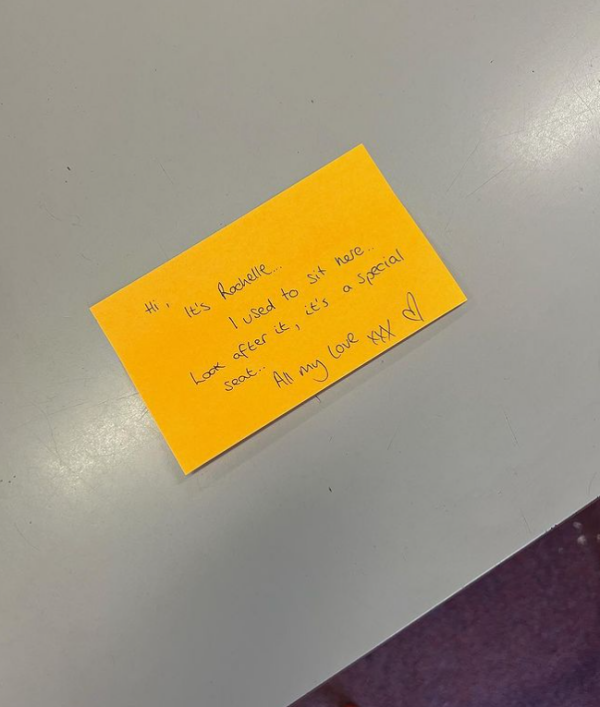 Hi, It's Rochelle...
I used to sit here..
Look after it, it's a special
seat..
All my love xxx ♡